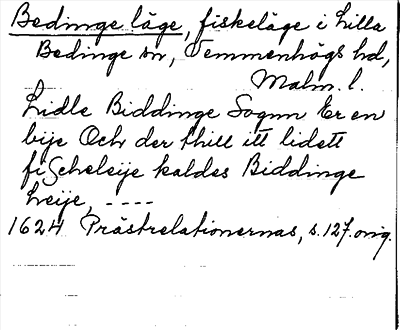 Bedinge läge, fiskeläge i Lilla
Bedinge sn, Vemmenhögs hd,
Malm. l.
Lidle Biddinge Sognn Er en
bije Och der thill itt lidett
fiScheleije kaldes Biddinge
Leije, ----
1624 Prästrelationernas, s. 127. orig.